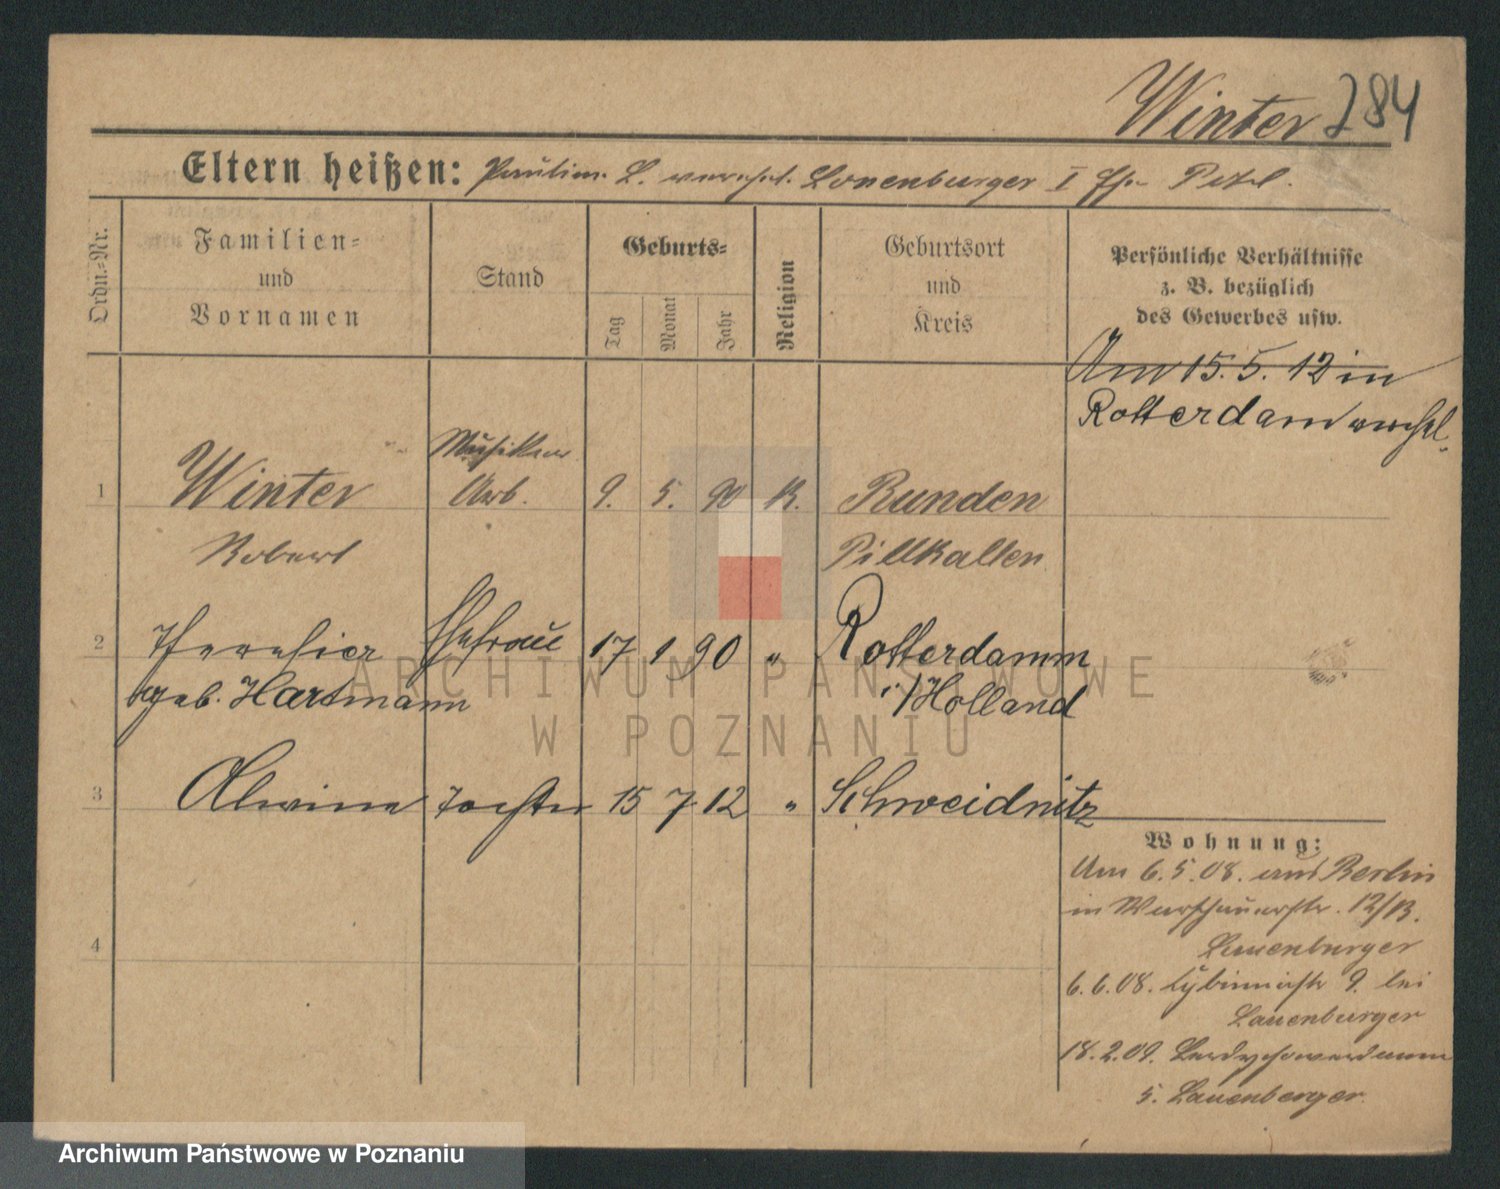 Winter 284
Eltern heißen: L. Lauenburger I
Ordn.-Nr.
Familien-
und
Vornamen
Stand
Geburts-
Tag
Monat
Jahr
Religion
Geburtsort
und
Kreis
Persönliche Verhältnisse
z. B. bezüglich
des Gewerbes usw.
Am 15. 5. 12 in
Rotterdam verehel.
Musiker
1 Winter Arb. 9. 5. 90 K. Runden
Robert Pillkallen
2 Ehefrau 17 1 90 " Rotterdamm
geb. Hartmann i/Holland
3 Alwine Tochter 15 7 12 " Schweidnitz
4
Wohnung:
Am 6. 5. 08. aus Berlin
in Warschauerstr. 12/13.
Lauenburger
6. 6. 08. 9. bei
Lauenburger
18. 2. 09.
5. Lauenberger.
ARCHIWUM PAŃSTWOWE
W POZNANIU
Archiwum Państwowe w Poznaniu